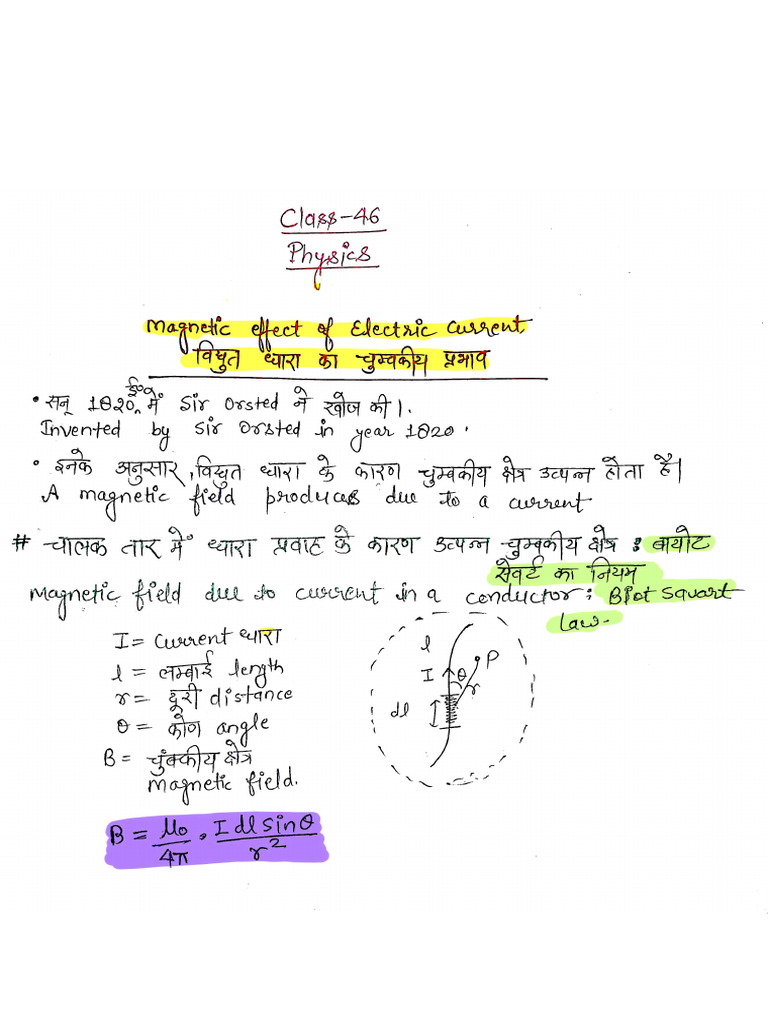 Class-46
Physics
Magnetic effect of Electric Current
विद्युत धारा का चुम्बकीय प्रभाव
• सन् 1820 ई० में Sir Orsted ने खोज की।
Invented by Sir Orsted in year 1820.
• इनके अनुसार, विद्युत धारा के कारण चुम्बकीय क्षेत्र उत्पन्न होता है।
A magnetic field produces due to a current
# चालक तार में धारा प्रवाह के कारण उत्पन्न चुम्बकीय क्षेत्र : बायोट
सेवर्ट का नियम
Magnetic field due to current in a conductor; Biot Savart
Law.
I = Current धारा
l = लम्बाई length
r = दूरी distance
θ = कोण angle
B = चुंक्कीय क्षेत्र
Magnetic field.
l
I θ P
r
dl
B = μ₀/4π · I dl sinθ/r²